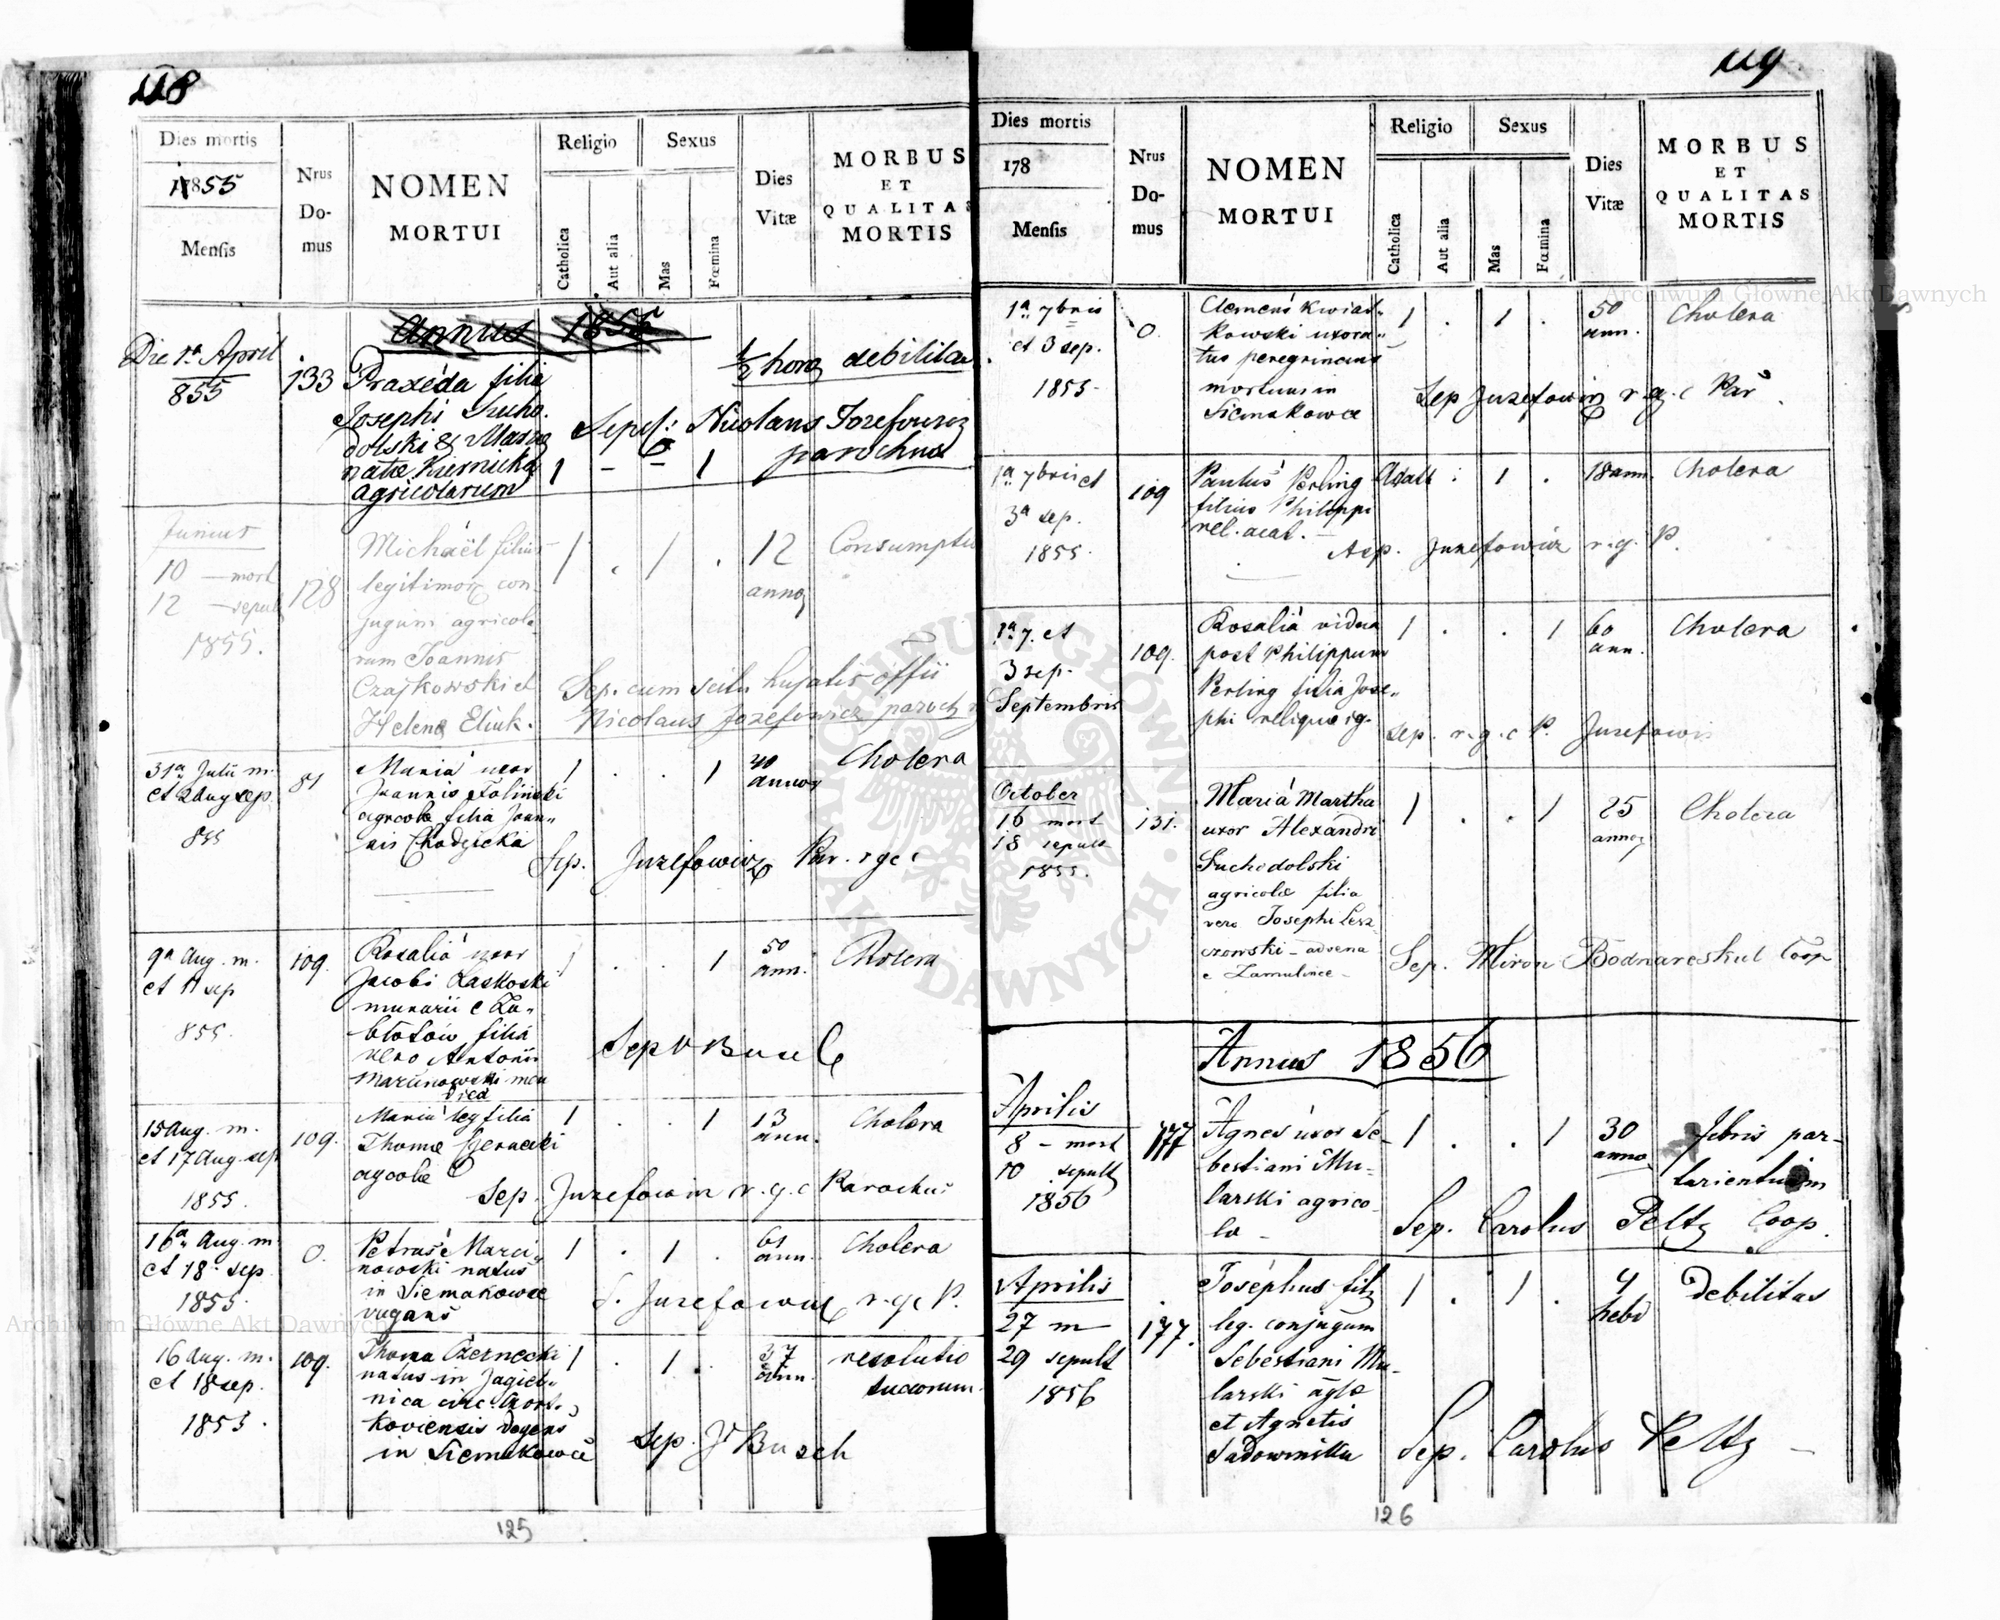 118
Dies mortis
1855
Mensis
Nrus
Do-
mus
NOMEN
MORTUI
Religio
Catholica
Aut alia
Sexus
Mas
Fœmina
Dies
Vitæ
MORBUS
ET
QUALITAS
MORTIS
Annus 1855
Die 1a April
855
133
Praxeda filia
Josephi Sucho
dolski & Maria
natæ Kiernicka
agricolarum
1 - - 1
½ hora debilitas
Sepel: Nicolaus Jozefowicz
parochus
Junius
10 — mort
12 — sepult
1855.
128
Michaël filius
legitimor con-
jugum agricola-
rum Joannis
Czajkowski et
Helena Eliuk.
1 . 1 .
12
annor
Consumptio
Sep. cum scitu hujatis offii
Nicolaus Jozefowicz paroch
31a Julii m.
et 2 Aug sep.
855
81
Maria uxor
Joannis Folinski
agricolæ filia Joan-
nis Chodzicka
1 . . 1
40
annor
Cholera
Sep. Juzefowicz Par. r g c
9a Aug. m.
et 11 sep
855.
109.
Rosalia uxor
Jacobi Laskoski
murarii e Za-
błotow filia
vero Antonii
Marunowski men
dica
1 . . 1
50
ann.
Cholera
Sep
15 Aug. m.
et 17 Aug. sep
1855.
109.
Maria leg filia
Thomæ Czernecki
agcolæ
1 . . 1
13
ann.
Cholera
Sep. Juzefowicz r. g. c Parochus
16a Aug. m
et 18. sep
1855.
0.
Petrus Marci-
nowski natus
in Siemakowce
vagans
1 . 1 .
61
ann.
Cholera
S. Juzefowicz r. g c P.
16 Aug. m.
et 18 sep.
1855.
109.
Thoma Czernecki
natus in Jagiel-
nica circ. Czort-
koviensis degens
in Siemakowce
1 . 1 .
37
ann.
resolutio
sucorum.
Sep. Jr Busch
125
119
Dies mortis
178
Mensis
Nrus
Do-
mus
NOMEN
MORTUI
Religio
Catholica
Aut alia
Sexus
Mas
Fœmina
Dies
Vitæ
MORBUS
ET
QUALITAS
MORTIS
1a 7bris
et 3 sep.
1855-
0.
Clemens Kwiat-
kowski uxora-
tus peregrinans
mortuus in
Siemakowce
1 . 1 .
50
ann.
Cholera
Sep Juzefowicz r. g. c Par
1a 7bris et
3a sep.
1855.
109
Paulus Perling
filius Philippi
rel. acat.
Acatt . 1 .
18 ann.
Cholera
Sep. Juzefowicz r. g. P.
1a 7. et
3 sep.
Septembris
109.
Rosalia vidua
post Philippum
Perling filia Jose-
phi reliqua ig.
1 . . 1
60
ann.
Cholera
Sep. r. g. c P. Juzefowi
October
16 mort
18 sepult
1855.
131.
Maria Martha
uxor Alexandri
Suchodolski
agricolæ filia
vero Josephi Lesz
czowski - advena
e Zamulince -
1 . . 1
25
annor
Cholera
Sep. Miron Bodnareskul Coop
Annus 1856
Aprilis
8 - mort
10 sepult
1856
177
Agnes uxor Se-
bestiani Mu-
larski agrico-
la -
1 . . 1
30
anno
febris par-
turientium
Sep. Carolus Peltz Coop.
Aprilis
27 m
29 sepult
1856
177.
Josephus fil
leg. conjugum
Sebestiani Mu-
larski aglæ
et Agnetis
Sadowniska
1 . 1 .
4
hebd
Debilitas
Sep. Carolus Peltz -
126
Archiwum Główne Akt Dawnych
Archiwum Główne Akt Dawnych
ARCHIWUM GŁÓWNE AKT DAWNYCH